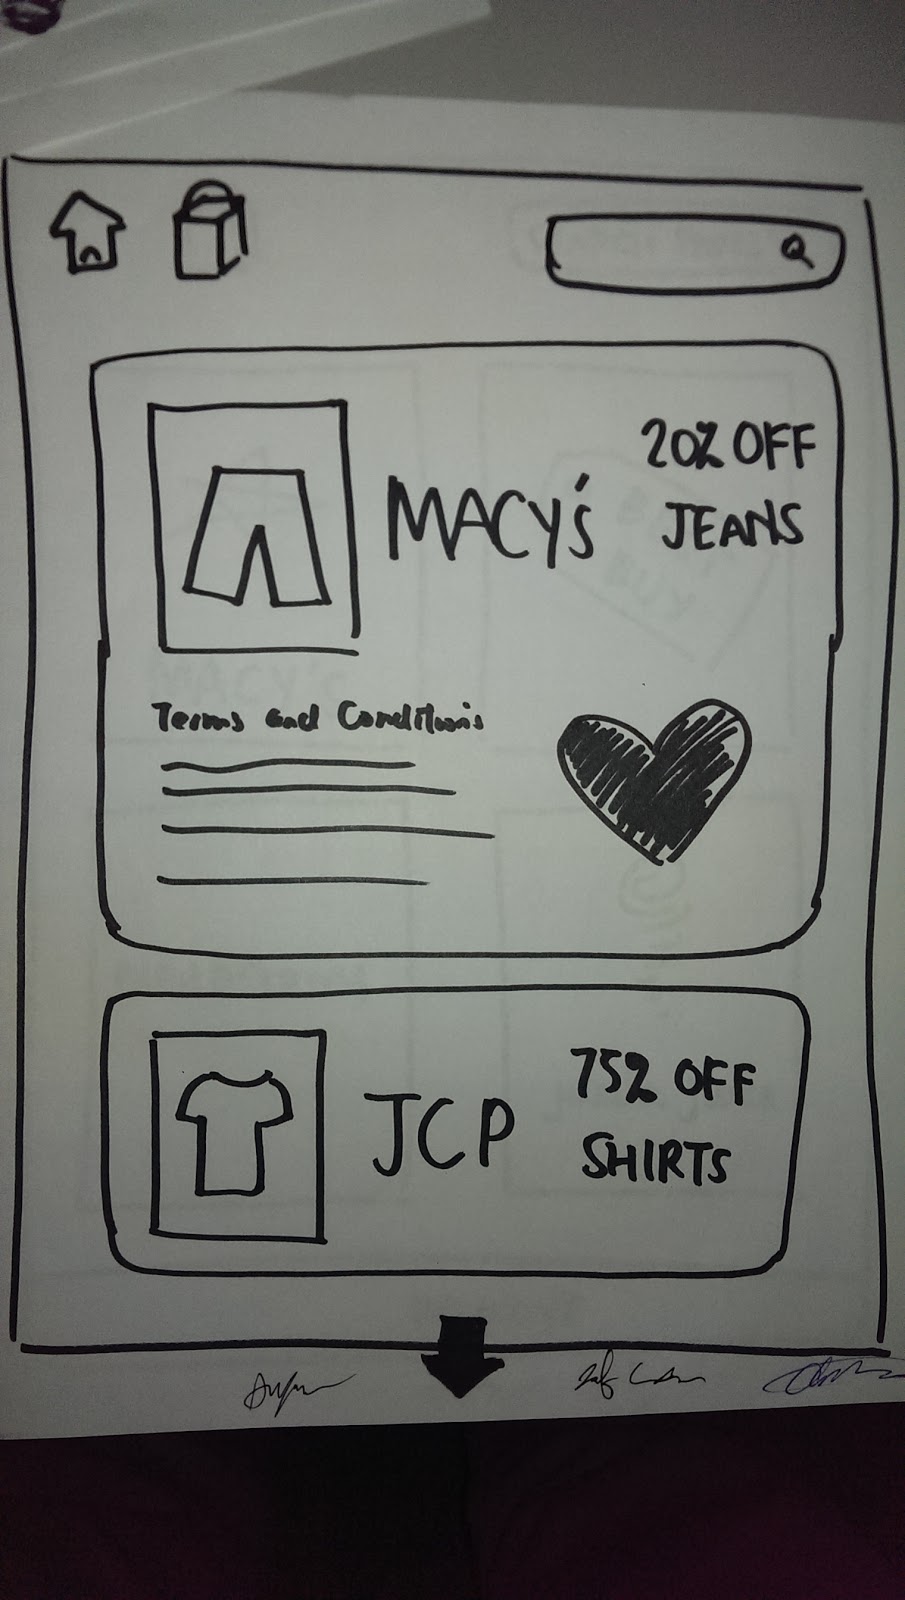 MACY's
20% OFF
JEANS
Terms and Conditions
JCP
75% OFF
SHIRTS